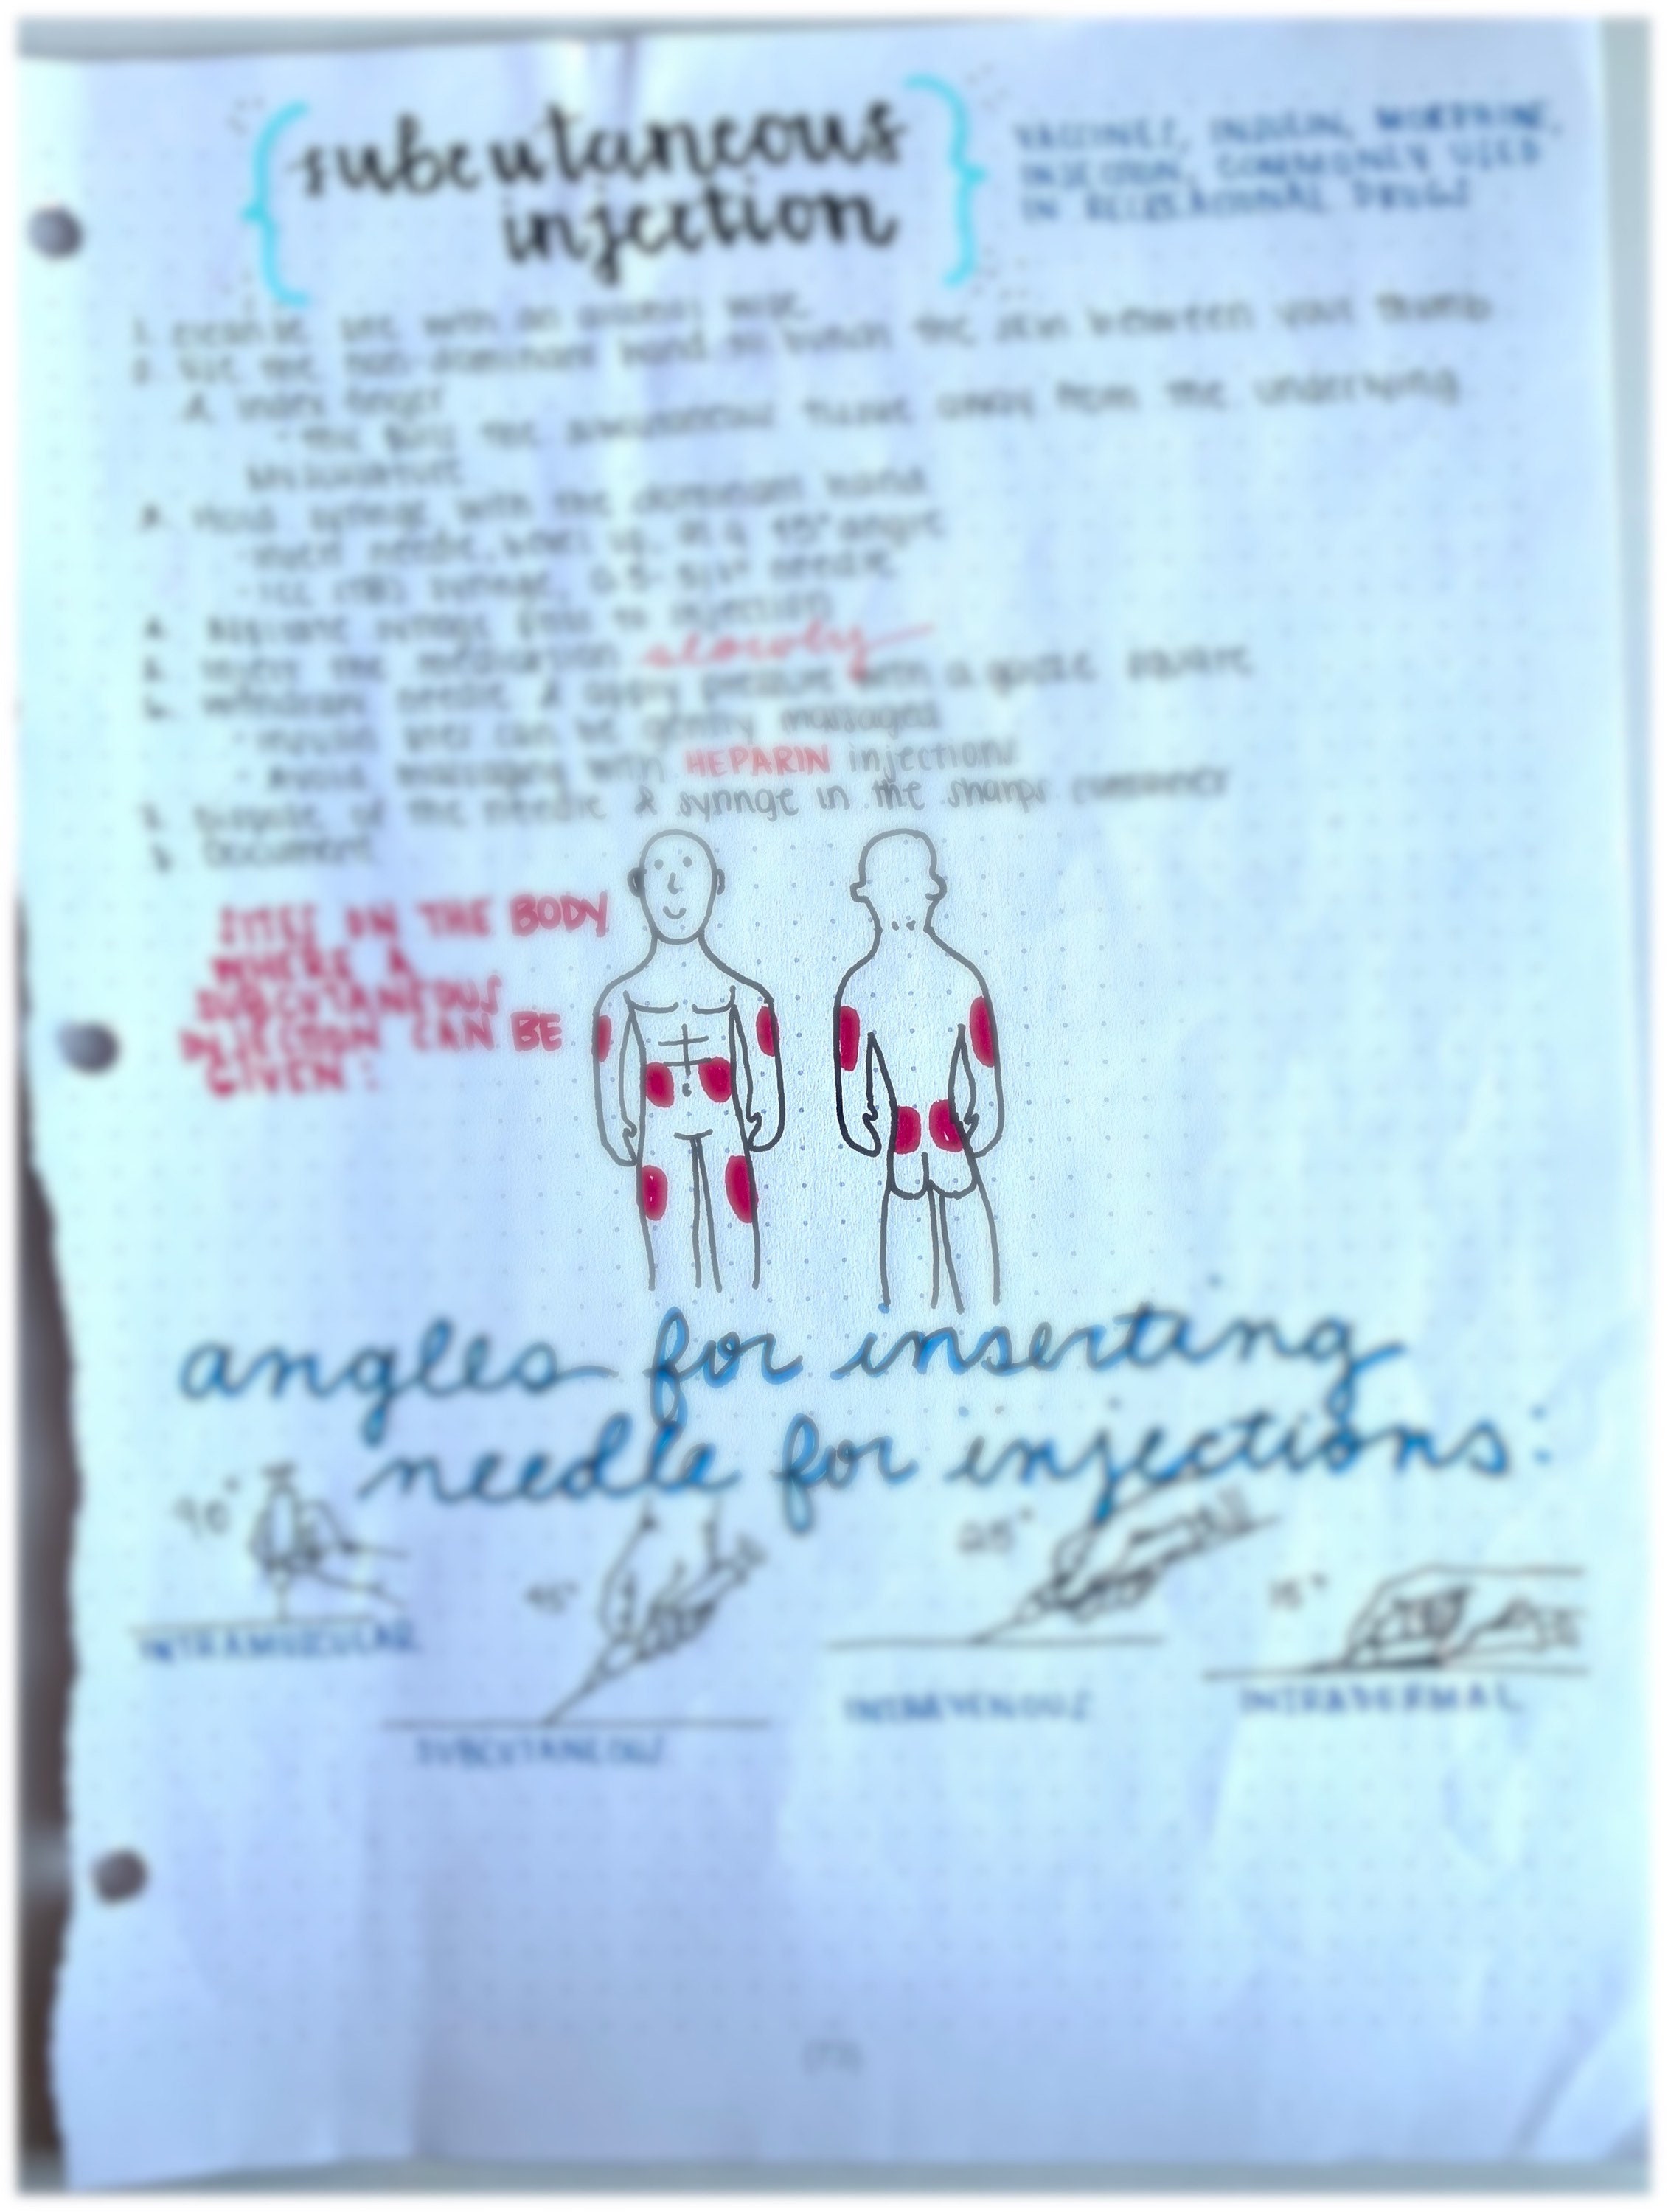 subcutaneous
injection
VACCINES, INSULIN, MORPHINE,
INJECTION, COMMONLY USED
IN RECREATIONAL DRUGS
1. cleanse site with an wipe
2. use the non-dominant hand to bunch the skin between your thumb
& index finger
the subcutaneous tissue away from the underlying
3. Hold syringe, with the dominant hand
- insert needle, bevel up, at a 45° angle
syringe, needle
4. Aspirate syringe to injection
5. inject the medication slowly
6. withdraw needle & apply pressure with a gauze square
- sites can be gently massaged
- Avoid massaging with HEPARIN injections
7. Dispose of the needle & syringe in the sharps container
8. Document
SITES ON THE BODY
WHERE A
SUBCUTANEOUS
INJECTION CAN BE
GIVEN:
angles for inserting
needle for injections:
90°
45°
25°
15°
INTRAMUSCULAR
SUBCUTANEOUS
INTRAVENOUS
INTRADERMAL